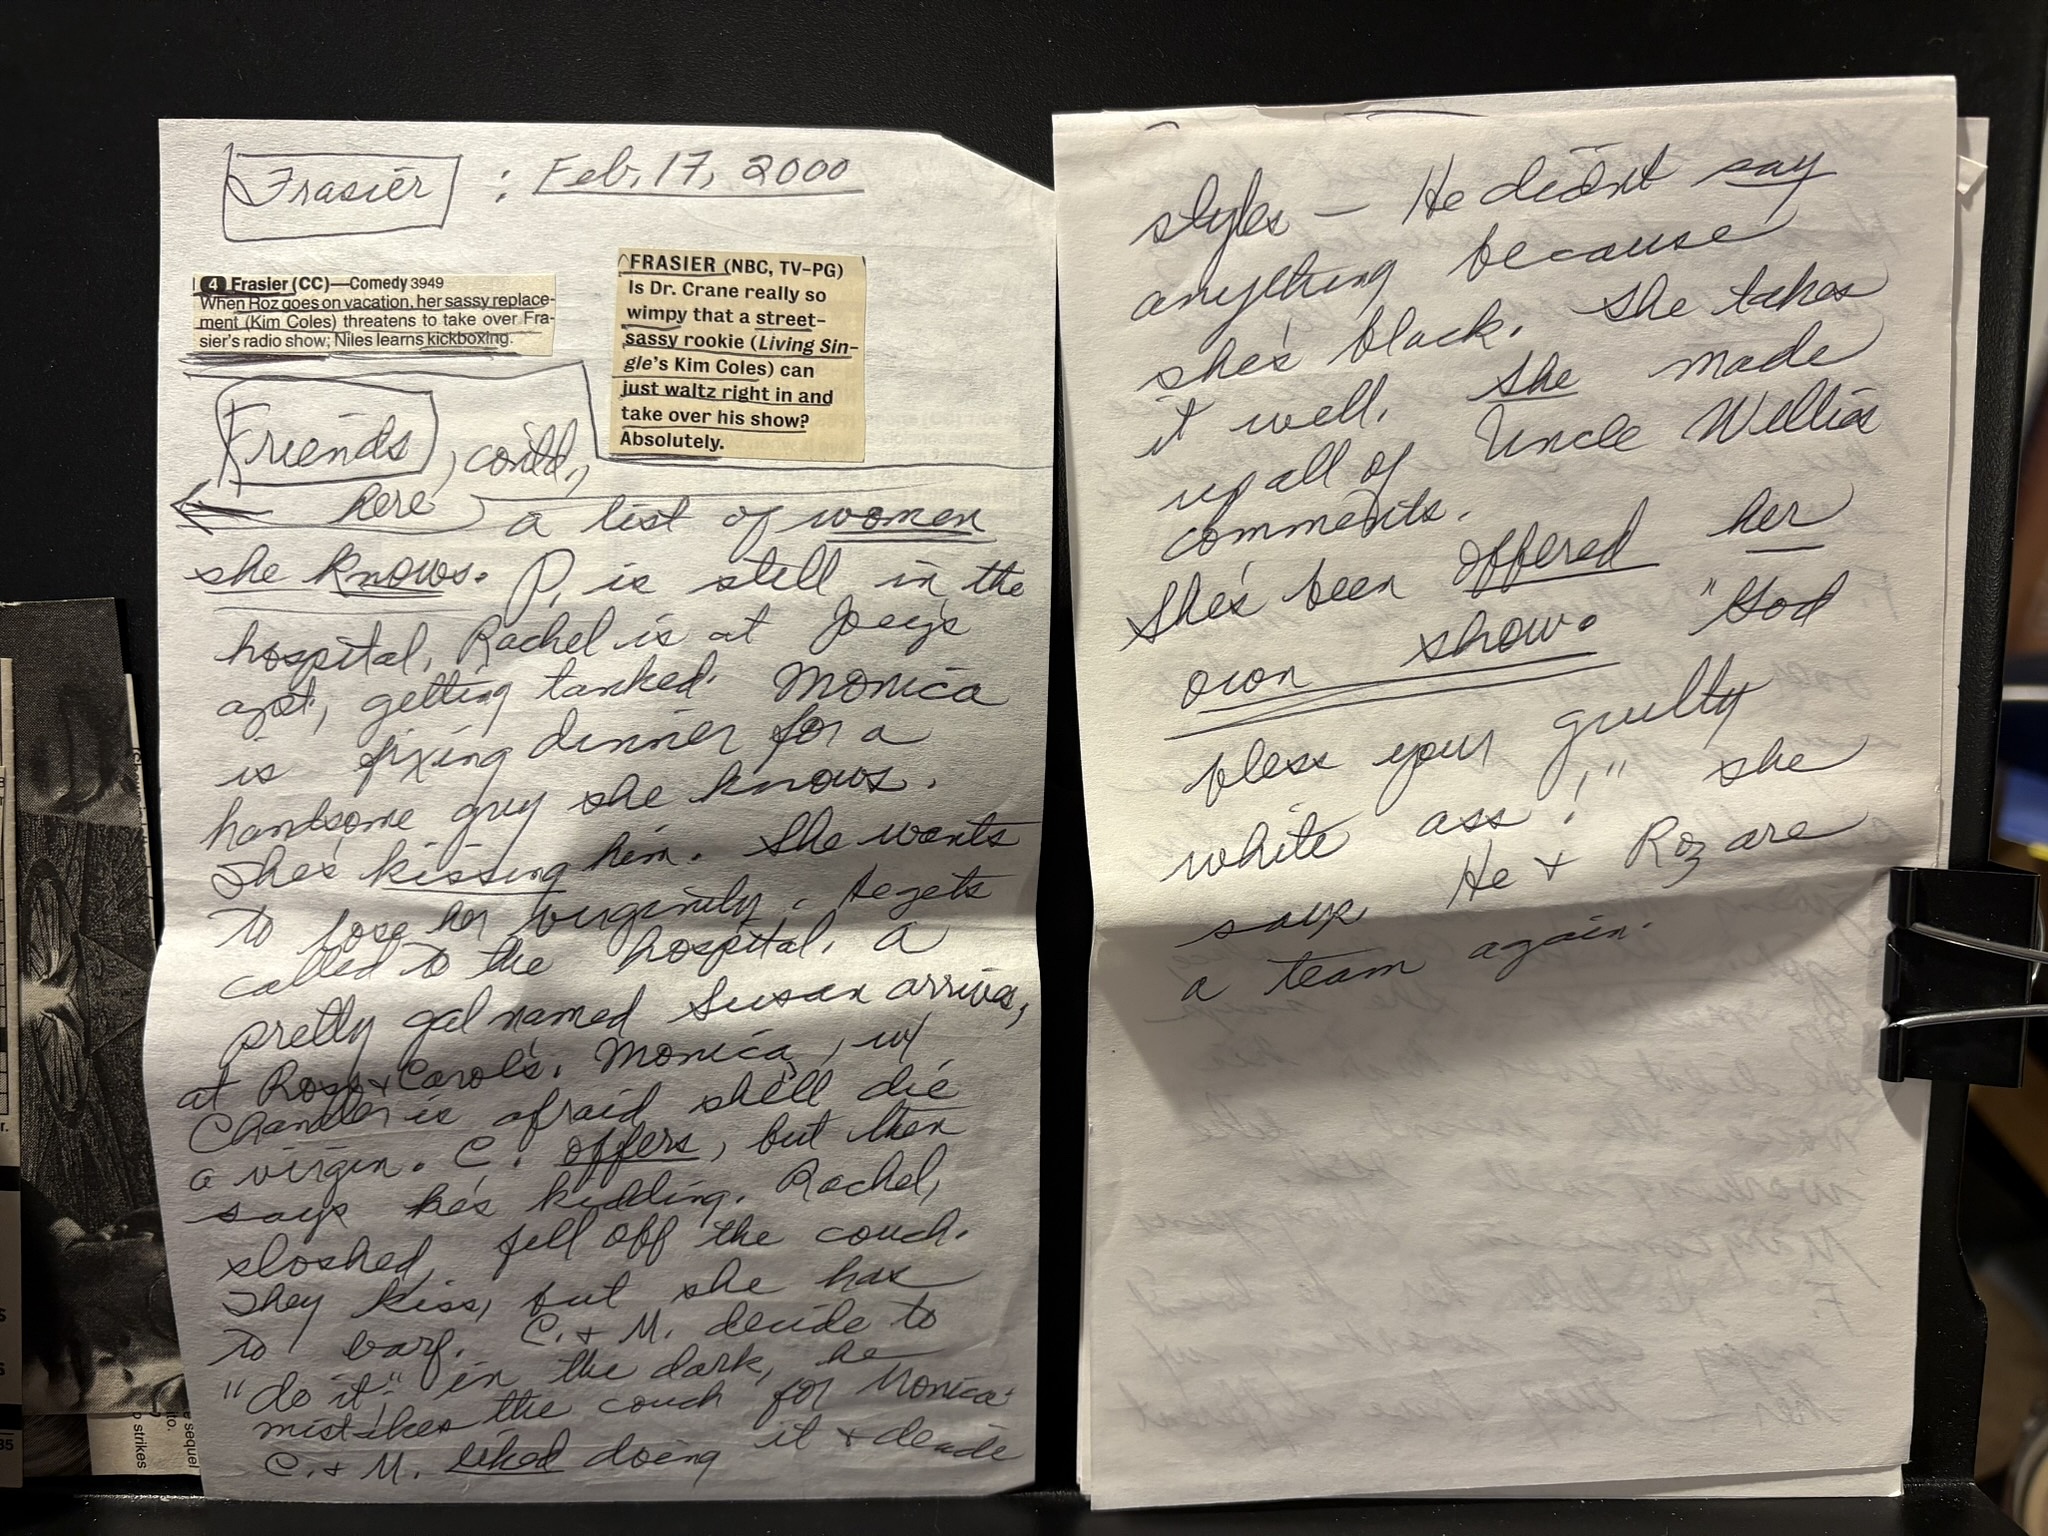 Frasier : Feb. 17, 2000
4 Frasier (CC)—Comedy 3949
When Roz goes on vacation, her sassy replace-
ment (Kim Coles) threatens to take over Fra-
sier's radio show; Niles learns kickboxing.
FRASIER (NBC, TV-PG)
Is Dr. Crane really so
wimpy that a street-
sassy rookie (Living Sin-
gle's Kim Coles) can
just waltz right in and
take over his show?
Absolutely.
Friends, cont'd,
here
a list of women
she knows. P. is still in the
hospital, Rachel is at Joey's
apt, getting tanked. Monica
is fixing dinner for a
handsome guy she knows.
She's kissing him. She wants
to lose her virginity. He gets
called to the hospital. A
pretty gal named Susan arrives,
at Ross + Carol's. Monica, w/
Chandler is afraid she'll die
a virgin. C. offers, but then
says he's kidding. Rachel,
sloshed, fell off the couch.
They kiss, but she has
to barf. C. + M. decide to
"do it" in the dark, he
mistakes the couch for Monica.
C. + M. liked doing it + decide
styles — He didn't say
anything because
she's black. She takes
it well. She made
up all of Uncle Willies
comments.
She's been offered her
own show. "God
bless your guilty
white ass!" she
says. He + Roz are
a team again.
strikes
sequel